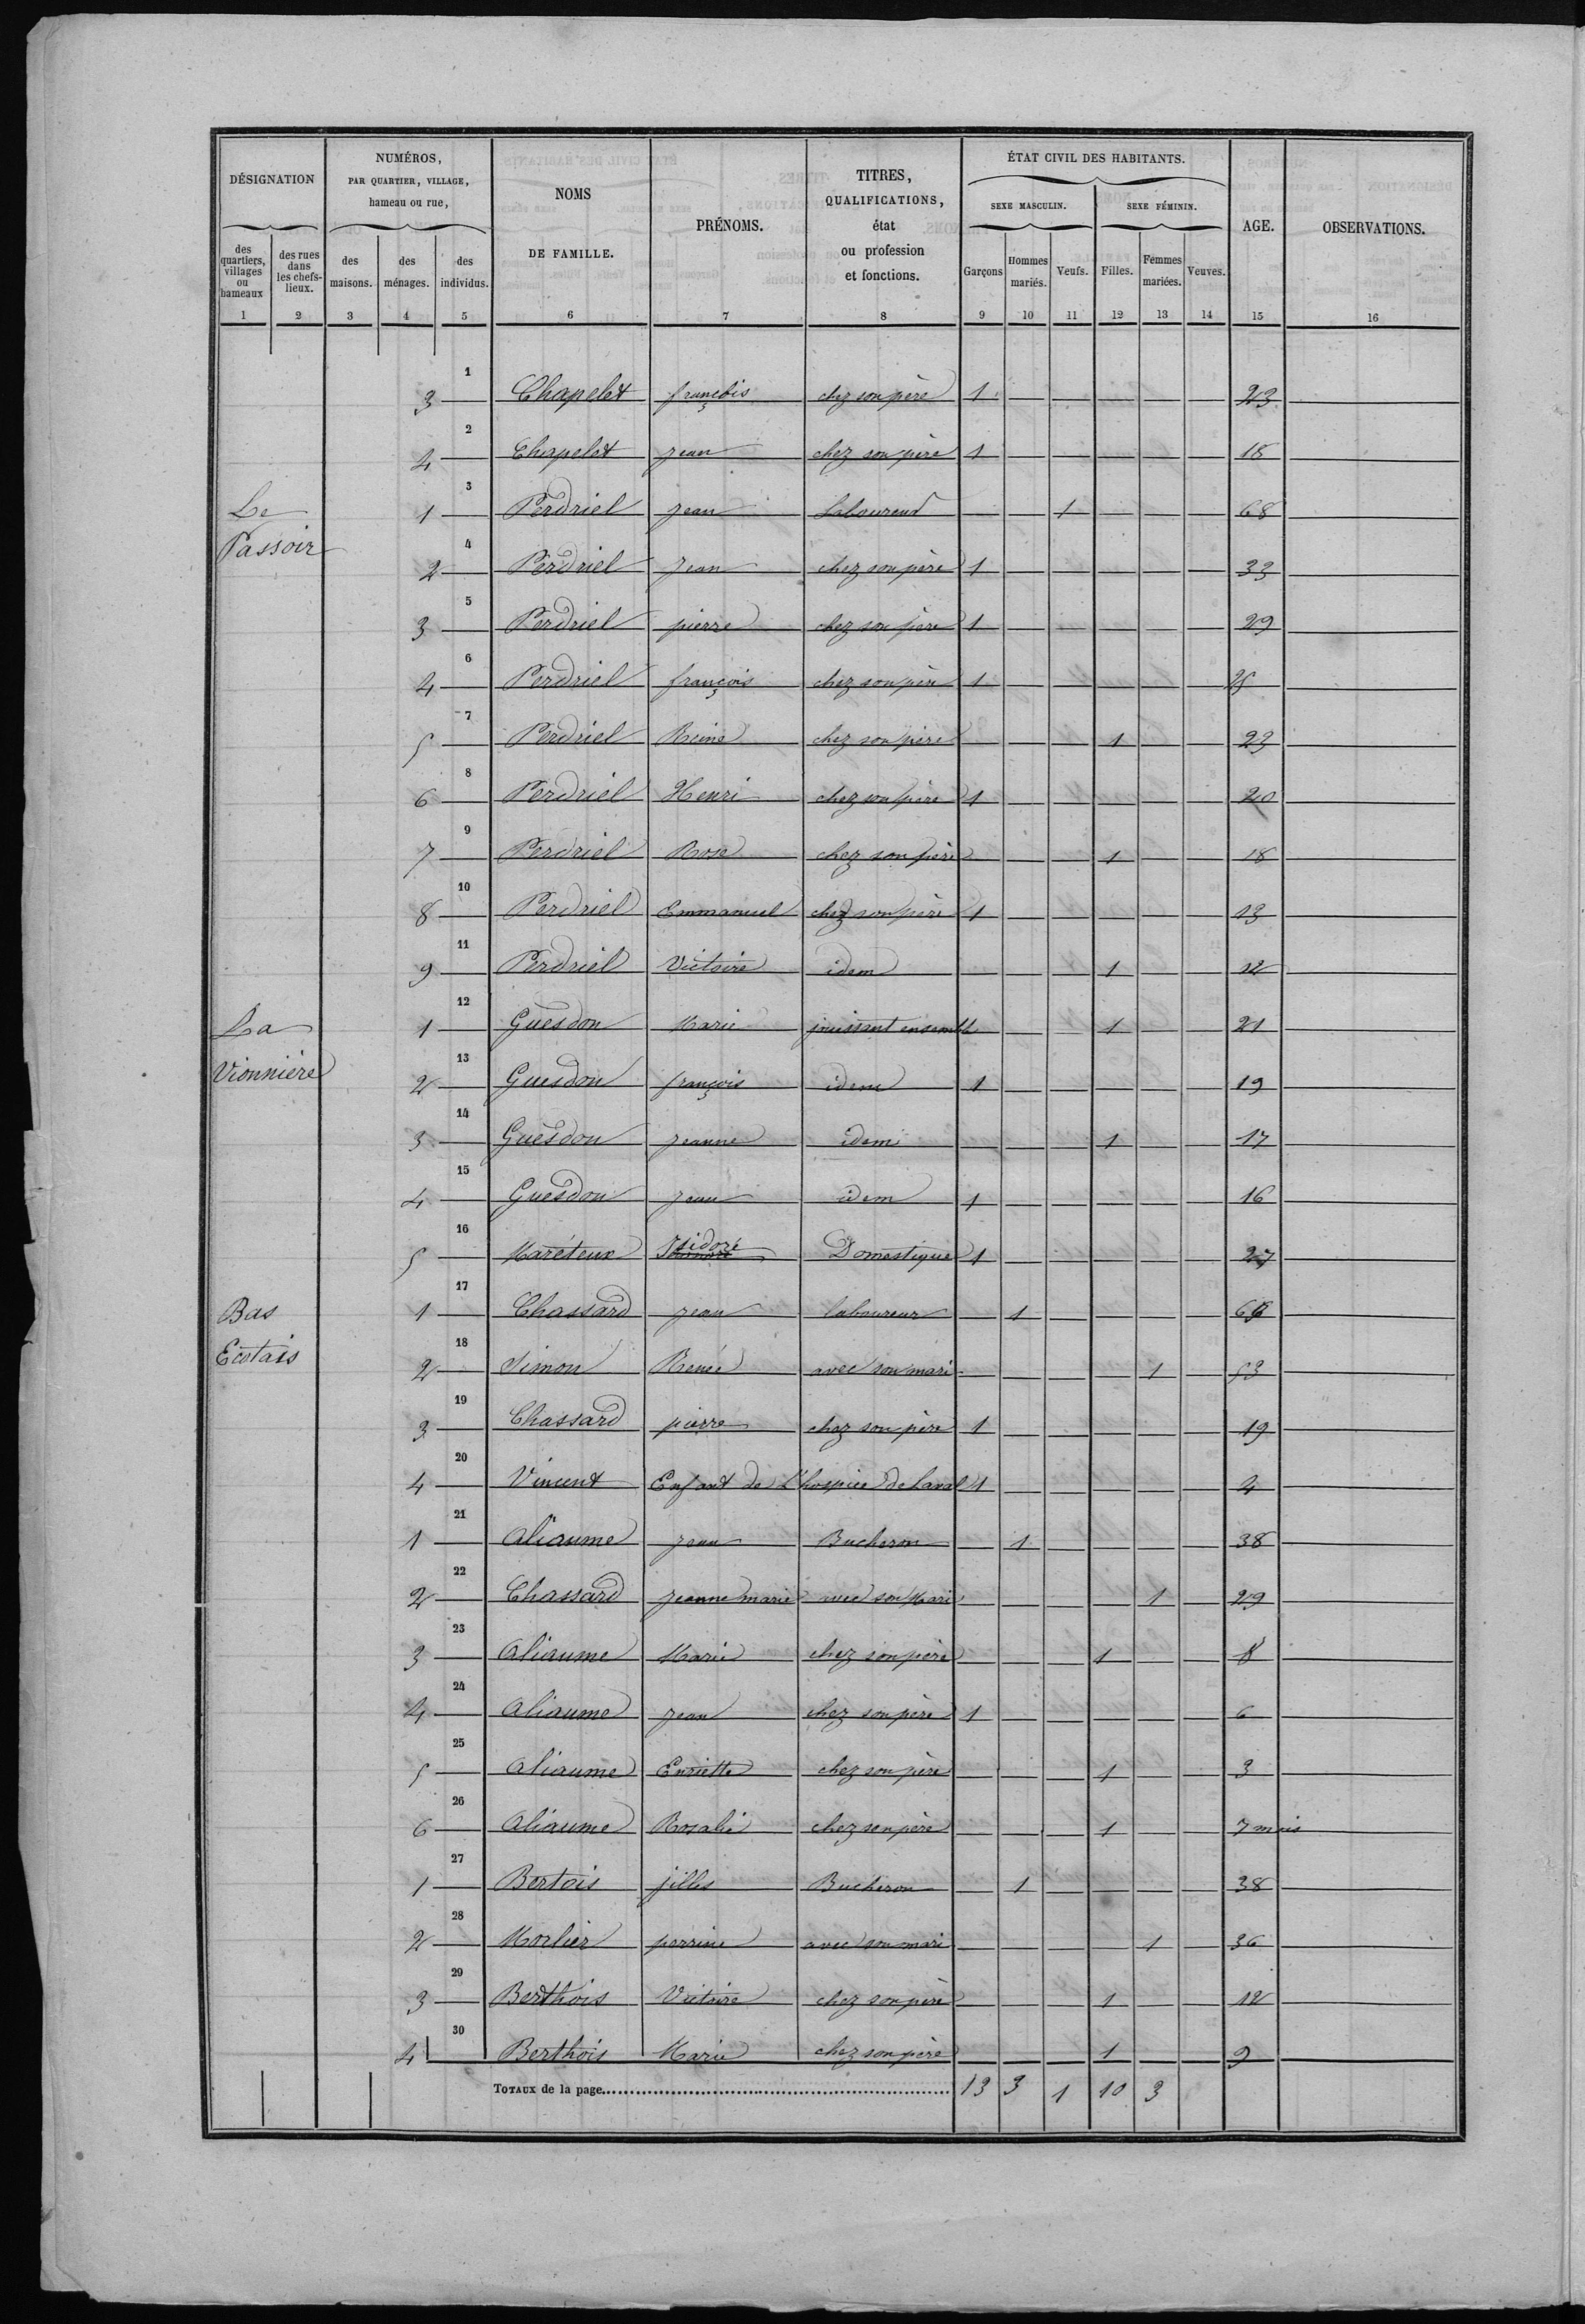 DÉSIGNATION
NUMÉROS,
PAR QUARTIER, VILLAGE,
hameau ou rue,
NOMS
DE FAMILLE.
PRÉNOMS.
TITRES,
QUALIFICATIONS,
état
ou profession
et fonctions.
ÉTAT CIVIL DES HABITANTS.
SEXE MASCULIN. SEXE FÉMININ.
AGE. OBSERVATIONS.
des
quartiers,
villages
ou
hameaux
des rues
dans
les chefs-
lieux.
des
maisons.
des
ménages.
des
individus.
Garçons
Hommes
mariés.
Veufs. Filles.
Femmes
mariées.
Veuves.
1 2 3 4 5 6 7 8 9 10 11 12 13 14 15 16
3 1 Chapelet françois chez son père 1 23
4 2 Chapelet jean chez son père 1 15
Le 1 3 Perdriel jean Laboureur 1 68
Passoir 2 4 Perdriel Jean chez son père 1 33
3 5 Perdriel pierre chez son père 1 29
4 6 Perdriel françois chez son père 1
5 7 Perdriel Reine chez son père 1 23
6 8 Perdriel Henri chez son père 1 20
7 9 Perdriel Rose chez son père 1 18
8 10 Perdriel Emmanuel chez son père 1 13
9 11 Perdriel Victoire idem 1 12
La 1 12 Guesdon Marie jouissant ensemble 1 21
Vionnière 2 13 Guesdon françois idem 1 19
3 14 Guesdon jeanne idem 1 17
4 15 Guesdon jean idem 1 16
5 16 Maréteux Isidore Domestique 1 27
Bas 1 17 Chassard jean laboureur 1
Ecotais 2 18 Simon Renée avec son mari 1 53
3 19 Chassard pierre chez son père 1 19
4 20 Vincent Enfant de L'hospice de Laval 1 4
1 21 Aliaume jean Bucheron 1 38
2 22 Chassard jeanne marie avec son Mari 1 29
3 23 Aliaume Marie chez son père 1 8
4 24 Aliaume jean chez son père 1 6
5 25 Aliaume Enriette chez son père 1 3
6 26 Aliaume Rosalie chez son père 1 7 mois
1 27 Bertois jilles Bucheron 1 38
2 28 Morlier perrine avec son mari 1 36
3 29 Berthois Victoire chez son père 1 12
4 30 Berthois Marie chez son père 1 9
TOTAUX de la page 13 3 1 10 3